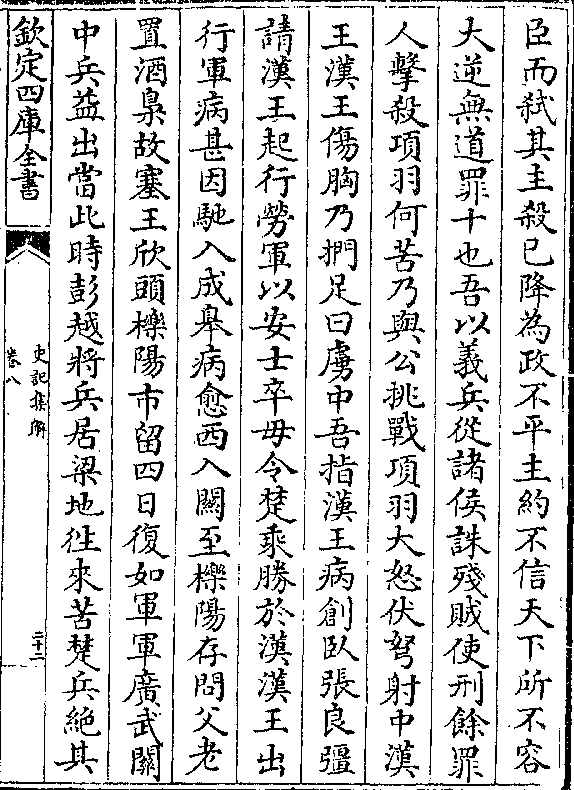 臣而弑其主殺已降為政不平主約不信天下所不容
大逆無道罪十也吾以義兵從諸侯誅殘賊使刑餘罪
人擊殺項羽何苦乃與公挑戰項羽大怒伏弩射中漢
王漢王傷胸乃捫足曰虜中吾指漢王病創臥張良彊
請漢王起行勞軍以安士卒毋令楚乘勝於漢漢王出
行軍病甚因馳入成臯病愈西入關至櫟陽存問父老
置酒梟故塞王欣頭櫟陽市留四日復如軍軍廣武關
中兵益出當此時彭越將兵居梁地往來苦楚兵絕其
欽定四庫全書
史記集解
卷八
二十二